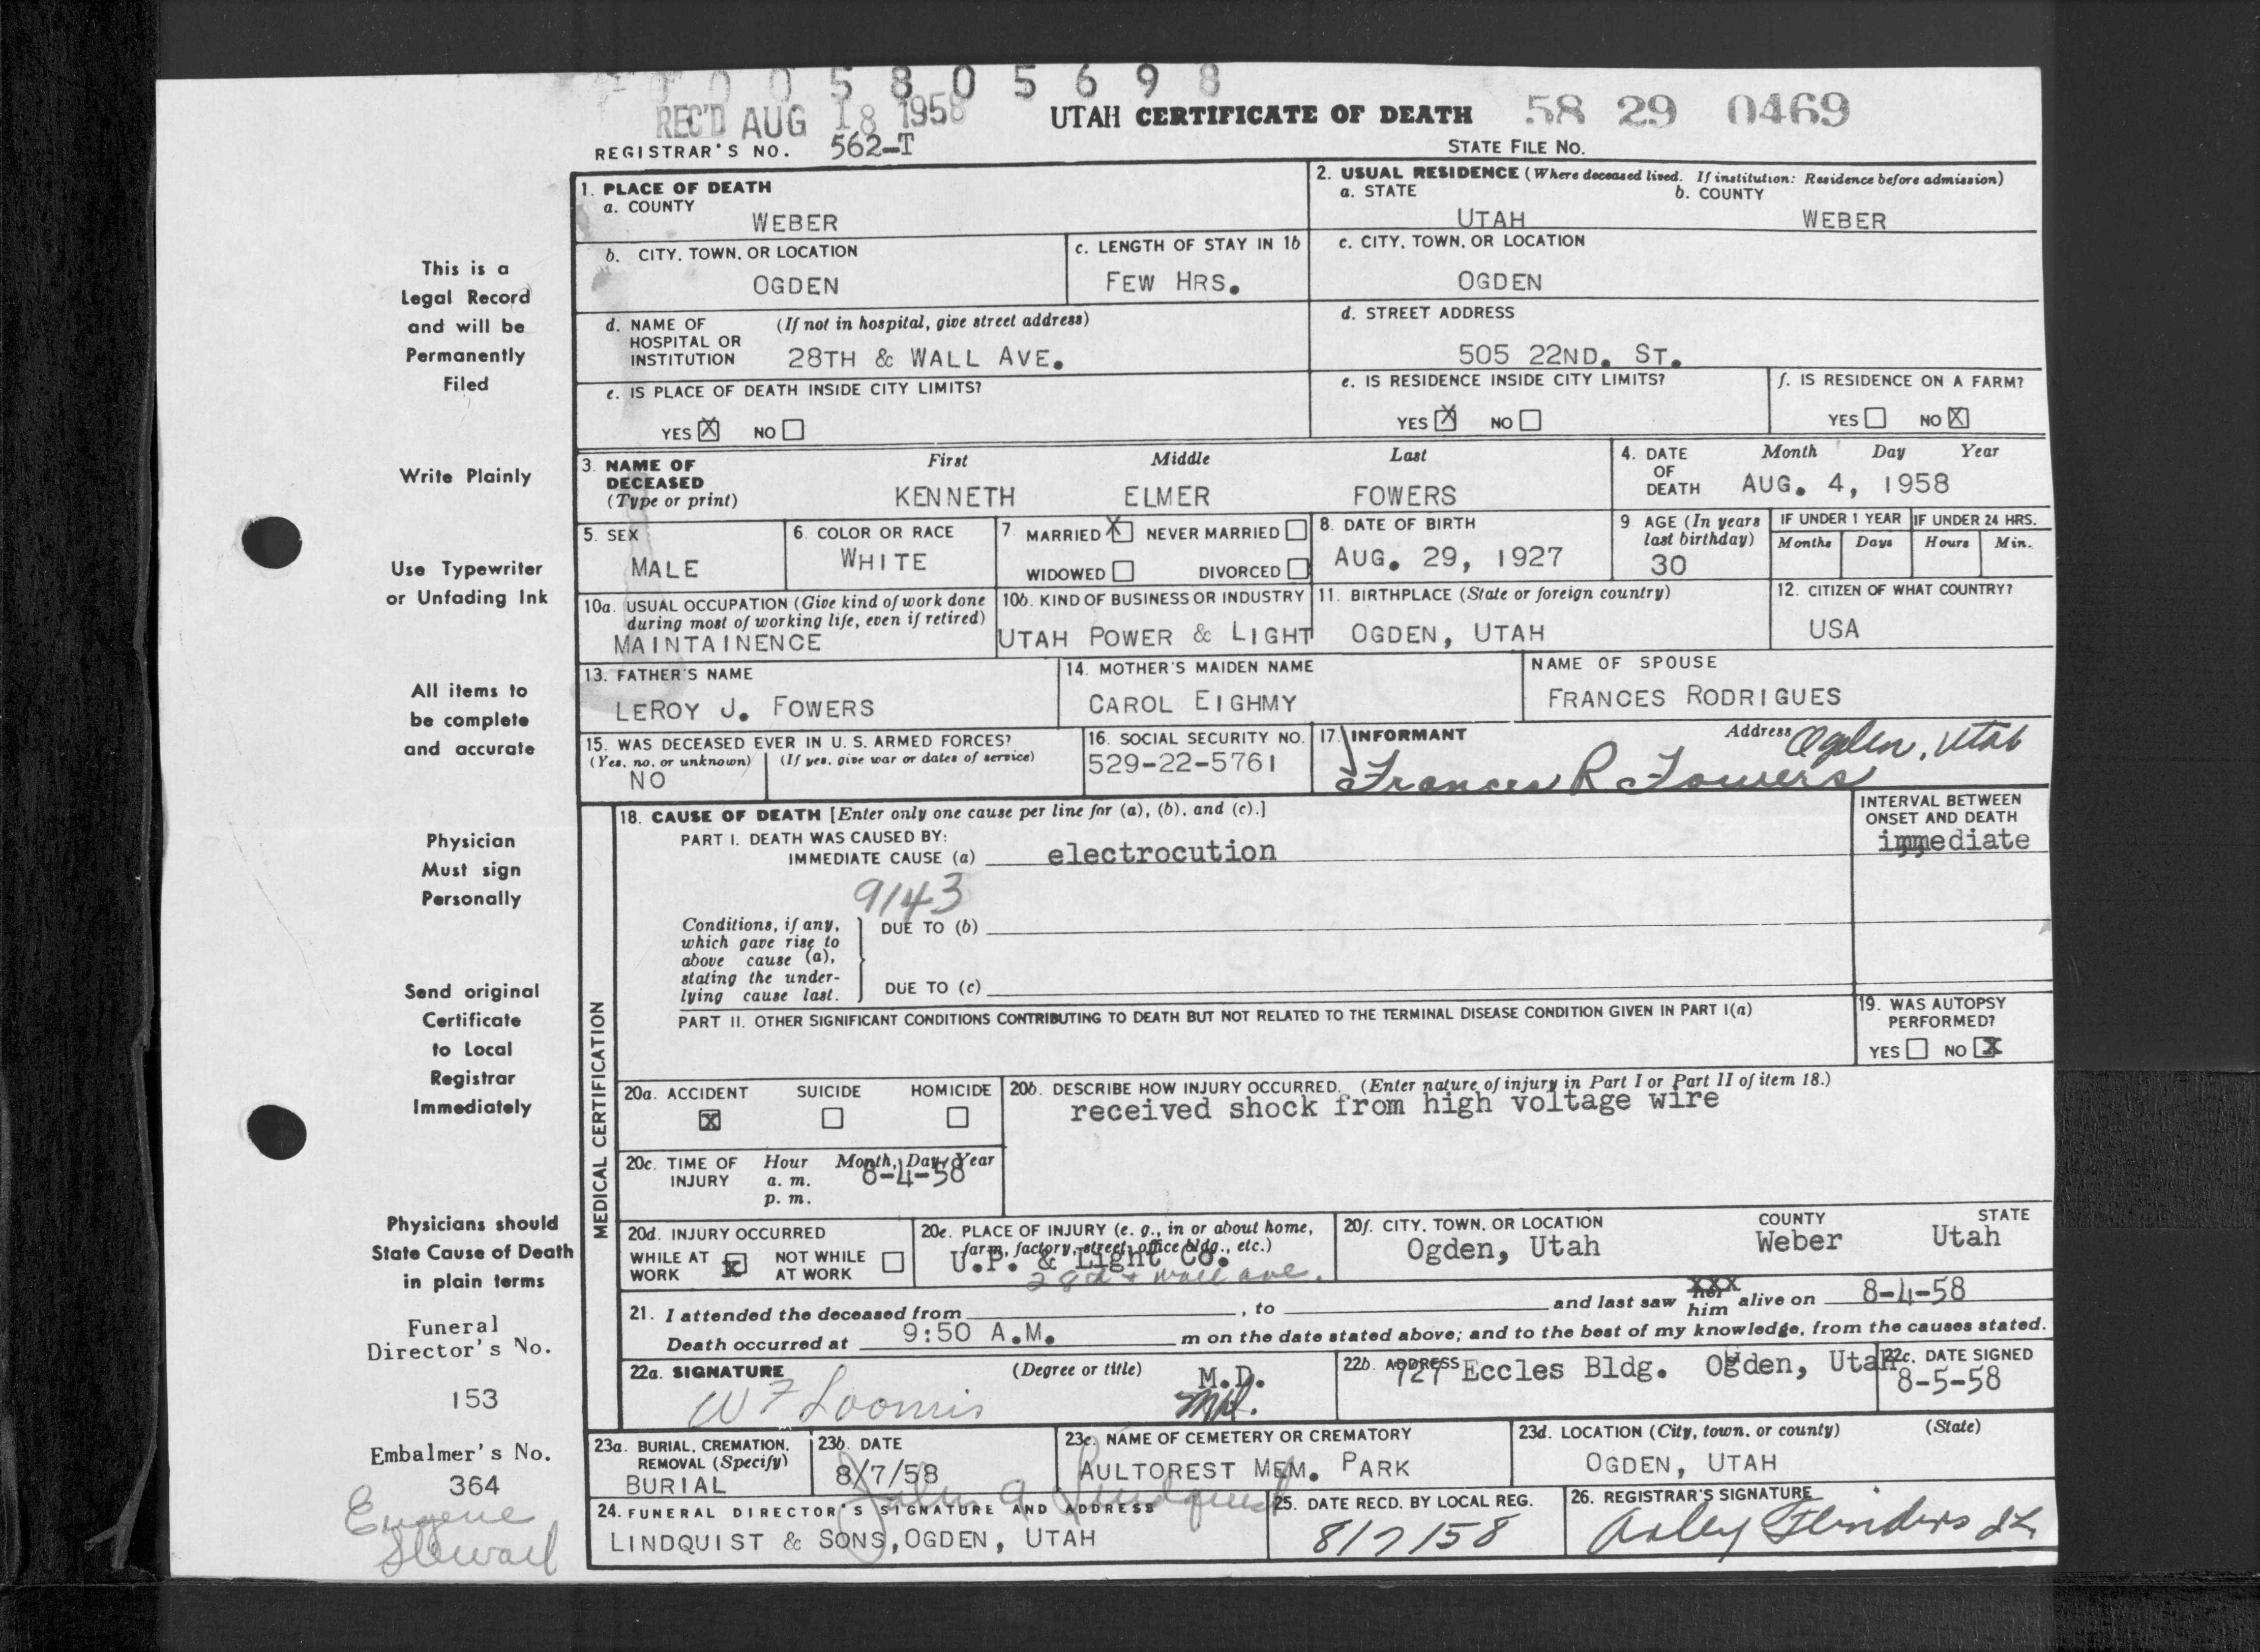 T 0 0 5 8 0 5 6 9 8
REC'D AUG 18 1958
UTAH CERTIFICATE OF DEATH
58 29 0469
REGISTRAR'S NO. 562-T
STATE FILE NO.
1. PLACE OF DEATH
a. COUNTY
WEBER
2. USUAL RESIDENCE (Where deceased lived. If institution: Residence before admission)
a. STATE
UTAH
b. COUNTY
WEBER
b. CITY, TOWN, OR LOCATION
OGDEN
c. LENGTH OF STAY IN 1b
FEW HRS.
c. CITY, TOWN, OR LOCATION
OGDEN
d. NAME OF HOSPITAL OR INSTITUTION
(If not in hospital, give street address)
28TH & WALL AVE.
d. STREET ADDRESS
505 22ND. ST.
e. IS PLACE OF DEATH INSIDE CITY LIMITS?
YES X NO
e. IS RESIDENCE INSIDE CITY LIMITS?
YES X NO
f. IS RESIDENCE ON A FARM?
YES NO X
3. NAME OF DECEASED (Type or print)
First Middle Last
KENNETH ELMER FOWERS
4. DATE OF DEATH
Month Day Year
AUG. 4, 1958
5. SEX
MALE
6. COLOR OR RACE
WHITE
7. MARRIED X NEVER MARRIED
WIDOWED DIVORCED
8. DATE OF BIRTH
AUG. 29, 1927
9 AGE (In years last birthday)
30
IF UNDER 1 YEAR
Months Days
IF UNDER 24 HRS.
Hours Min.
10a. USUAL OCCUPATION (Give kind of work done during most of working life, even if retired)
MAINTAINENCE
10b. KIND OF BUSINESS OR INDUSTRY
UTAH POWER & LIGHT
11. BIRTHPLACE (State or foreign country)
OGDEN, UTAH
12. CITIZEN OF WHAT COUNTRY?
USA
13. FATHER'S NAME
LEROY J. FOWERS
14. MOTHER'S MAIDEN NAME
CAROL EIGHMY
NAME OF SPOUSE
FRANCES RODRIGUES
15. WAS DECEASED EVER IN U. S. ARMED FORCES?
(Yes, no, or unknown) (If yes, give war or dates of service)
NO
16. SOCIAL SECURITY NO.
529-22-5761
17. INFORMANT
Address Ogden, Utah
Frances R Fowers
MEDICAL CERTIFICATION
18. CAUSE OF DEATH [Enter only one cause per line for (a), (b), and (c).]
PART I. DEATH WAS CAUSED BY:
IMMEDIATE CAUSE (a) electrocution
INTERVAL BETWEEN ONSET AND DEATH
immediate
9143
Conditions, if any, which gave rise to above cause (a), stating the underlying cause last.
DUE TO (b)
DUE TO (c)
PART II. OTHER SIGNIFICANT CONDITIONS CONTRIBUTING TO DEATH BUT NOT RELATED TO THE TERMINAL DISEASE CONDITION GIVEN IN PART I(a)
19. WAS AUTOPSY PERFORMED?
YES NO X
20a. ACCIDENT SUICIDE HOMICIDE
X
20b. DESCRIBE HOW INJURY OCCURRED. (Enter nature of injury in Part I or Part II of item 18.)
received shock from high voltage wire
20c. TIME OF INJURY
Hour Month, Day, Year
a. m.
p. m.
8-4-58
20d. INJURY OCCURRED
WHILE AT WORK X NOT WHILE AT WORK
20e. PLACE OF INJURY (e. g., in or about home, farm, factory, street, office bldg., etc.)
U.P. & Light Co.
28th + wall ave.
20f. CITY, TOWN, OR LOCATION COUNTY STATE
Ogden, Utah Weber Utah
21. I attended the deceased from , to and last saw her him alive on 8-4-58
Death occurred at 9:50 A.M. m on the date stated above; and to the best of my knowledge, from the causes stated.
22a. SIGNATURE (Degree or title)
W F Loomis M.D.
MD.
22b. ADDRESS
727 Eccles Bldg. Ogden, Utah
22c. DATE SIGNED
8-5-58
23a. BURIAL, CREMATION, REMOVAL (Specify)
BURIAL
23b. DATE
8/7/58
23c. NAME OF CEMETERY OR CREMATORY
AULTOREST MEM. PARK
23d. LOCATION (City, town, or county) (State)
OGDEN, UTAH
24. FUNERAL DIRECTOR'S SIGNATURE AND ADDRESS
John A Lindquist
LINDQUIST & SONS, OGDEN, UTAH
25. DATE RECD. BY LOCAL REG.
8/7/58
26. REGISTRAR'S SIGNATURE
Flinders
This is a
Legal Record
and will be
Permanently
Filed
Write Plainly
Use Typewriter
or Unfading Ink
All items to
be complete
and accurate
Physician
Must sign
Personally
Send original
Certificate
to Local
Registrar
Immediately
Physicians should
State Cause of Death
in plain terms
Funeral
Director's No.
153
Embalmer's No.
364
Eugene
Stewart